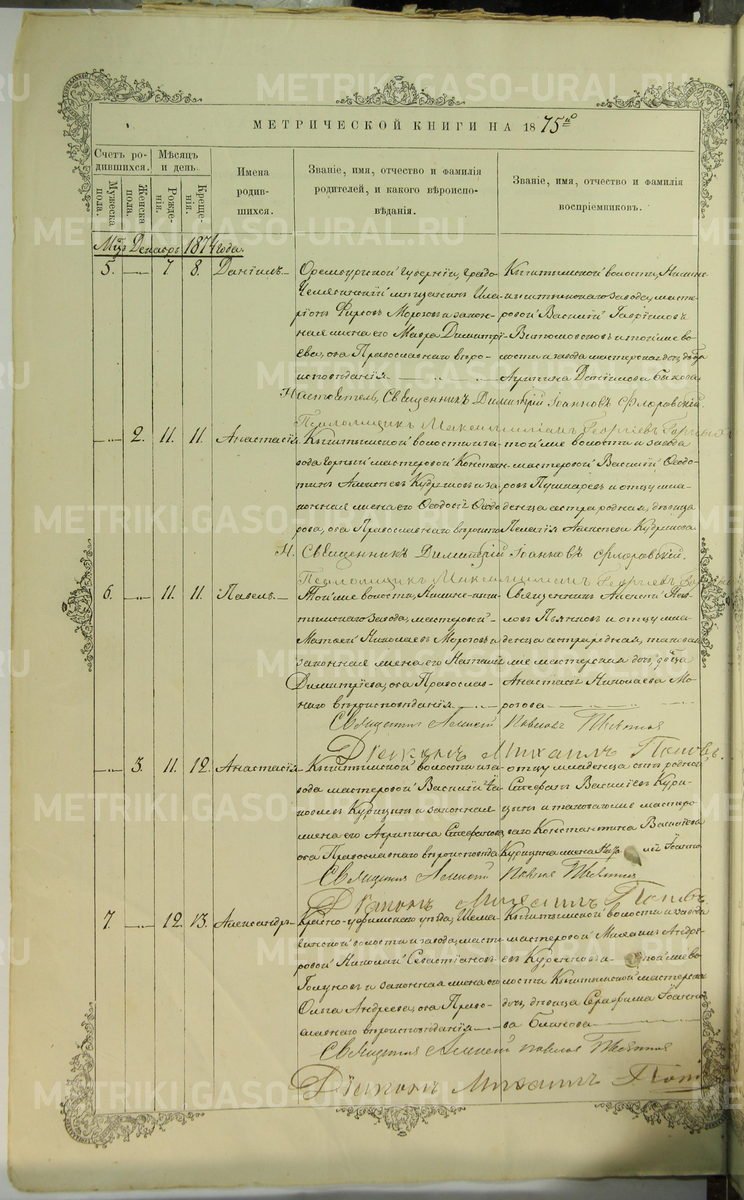 МЕТРИЧЕСКОЙ КНИГИ НА 1875й
Счетъ родившихся.
Мужеска пола
Женска пола.
Мѣсяцъ и день.
Рожденія.
Крещенія.
Имена родившихся.
Званіе, имя, отчество и фамилія родителей, и какого вѣроисповѣданія.
Званіе, имя, отчество и фамилія воспріемниковъ.
Мцъ Декабрь 1874 года.
5. 7 8. Даніилъ
Оренбургской губерніи, градо-
Челябинскій мѣщанинъ Ила-
ріонъ Фирсовъ Морозовъ и закон-
ная жена его Мавра Димитрі-
ева, оба Православнаго вѣро-
исповѣданія
Кыштымской волости, Нижне-
кыштымскаго завода, масте-
ровой Василій Гавріиловъ
и той же во-
лости и завода мастерская дочь
Агрипина Даніилова Быкова
Настоятель, Священникъ Димитрій Іоанновъ Флоровскій.
Псаломщикъ Максимиліанъ Георгіевъ
2. 11. 11. Анастасія
Кыштымской волости и за-
вода горный мастеровой Констан-
тинъ Алексѣевъ Кудринъ и за-
конная жена его Ѳеодосія Ѳеодо-
рова, оба Православнаго вѣроиспо
той же волости и завода
мастеровой Василій Ѳеодо-
ровъ Пушкаревъ и отцу мла-
денца сестра родная, дѣвица
Пелагія Алексѣева Кудринова
Н. Священникъ Димитрій Іоанновъ Флоровскій.
Псаломщикъ Максимиліанъ Георгіевъ
6. 11. 11. Павелъ
Той же волости, Нижне-кыш-
тымскаго завода, мастеровой
Матвей Николаевъ Морозовъ и
законная жена его Наталія
Димитріева, оба Православ-
наго вѣроисповѣданія
Священникъ Алексій Пав-
ловъ и отцу мла-
денца сестра родная, такая
же мастерская дочь дѣвица
Анастасія Николаева Мо-
розова
Священникъ Алексій Павловъ
Діаконъ Михаилъ Поповъ.
3. 11. 12. Анастасія
Кыштымской волости и за-
вода мастеровой Василій
Курицинъ и законная
жена его Агрипина Стефанова,
оба Православнаго вѣроисповѣда
отцу младенца сынъ родной
Стефанъ Василіевъ Кури-
цынъ и таковаго же мастеро-
ваго Константина Василіева
Курицина жена
Священникъ Алексій Павловъ
Діаконъ Михаилъ Поповъ
7. 12. 13. Александръ
Красно-уфимскаго уѣзда, Шема-
хинской волости и завода, масте-
ровой Николай Севастіановъ
Голуновъ и законная жена его
Ольга Андреева, оба Право-
славнаго вѣроисповѣданія
Кыштымской волости и завода
мастеровой Михаилъ Андре-
евъ Куренновъ и той же во-
лости Кыштымской мастерская
дочь, дѣвица Серафима Іоанно-
ва Блинова
Священникъ Алексій Павловъ
Діаконъ Михаилъ Поп
METRIKI.GASO-URAL.RU